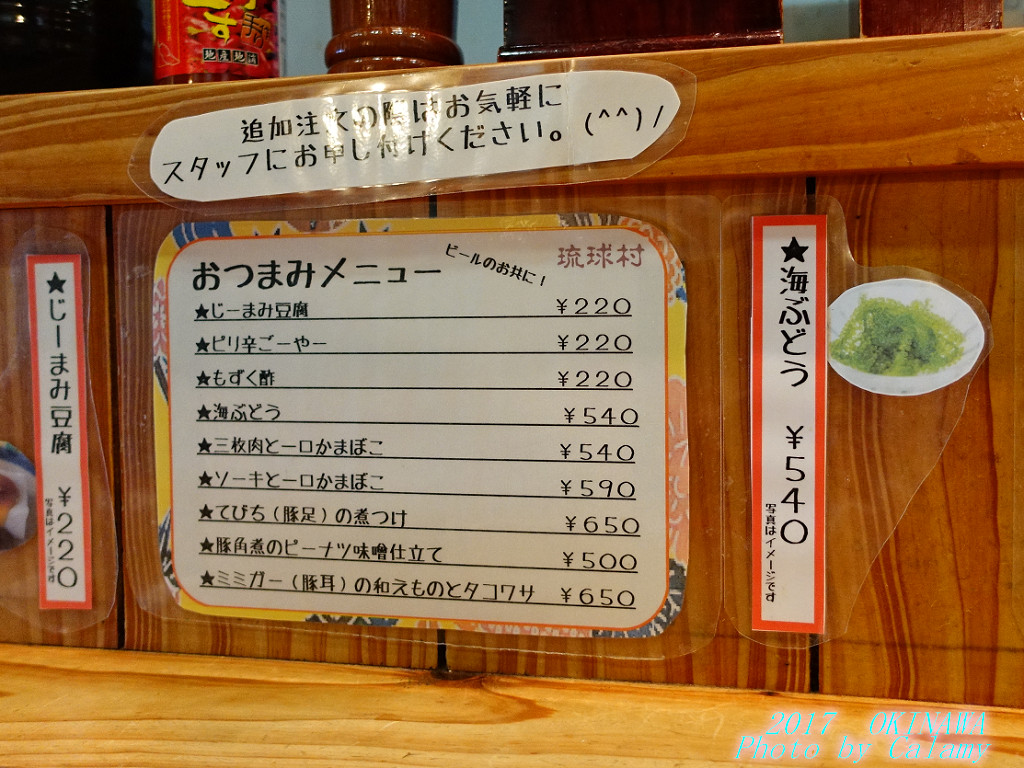 追加注文の際はお気軽に
スタッフにお申し付けください。(^^)/
おつまみメニュー
ビールのお共に！
琉球村
★じーまみ豆腐 ￥220
★ピリ辛ごーやー ￥220
★もずく酢 ￥220
★海ぶどう ￥540
★三枚肉と一口かまぼこ ￥540
★ソーキと一口かまぼこ ￥590
★てびち（豚足）の煮つけ ￥650
★豚角煮のピーナツ味噌仕立て ￥500
★ミミガー（豚耳）の和えものとタコワサ ￥650
★じーまみ豆腐 ￥220
写真はイメージです
★海ぶどう ￥540
写真はイメージです
2017 OKINAWA
Photo by Calamy